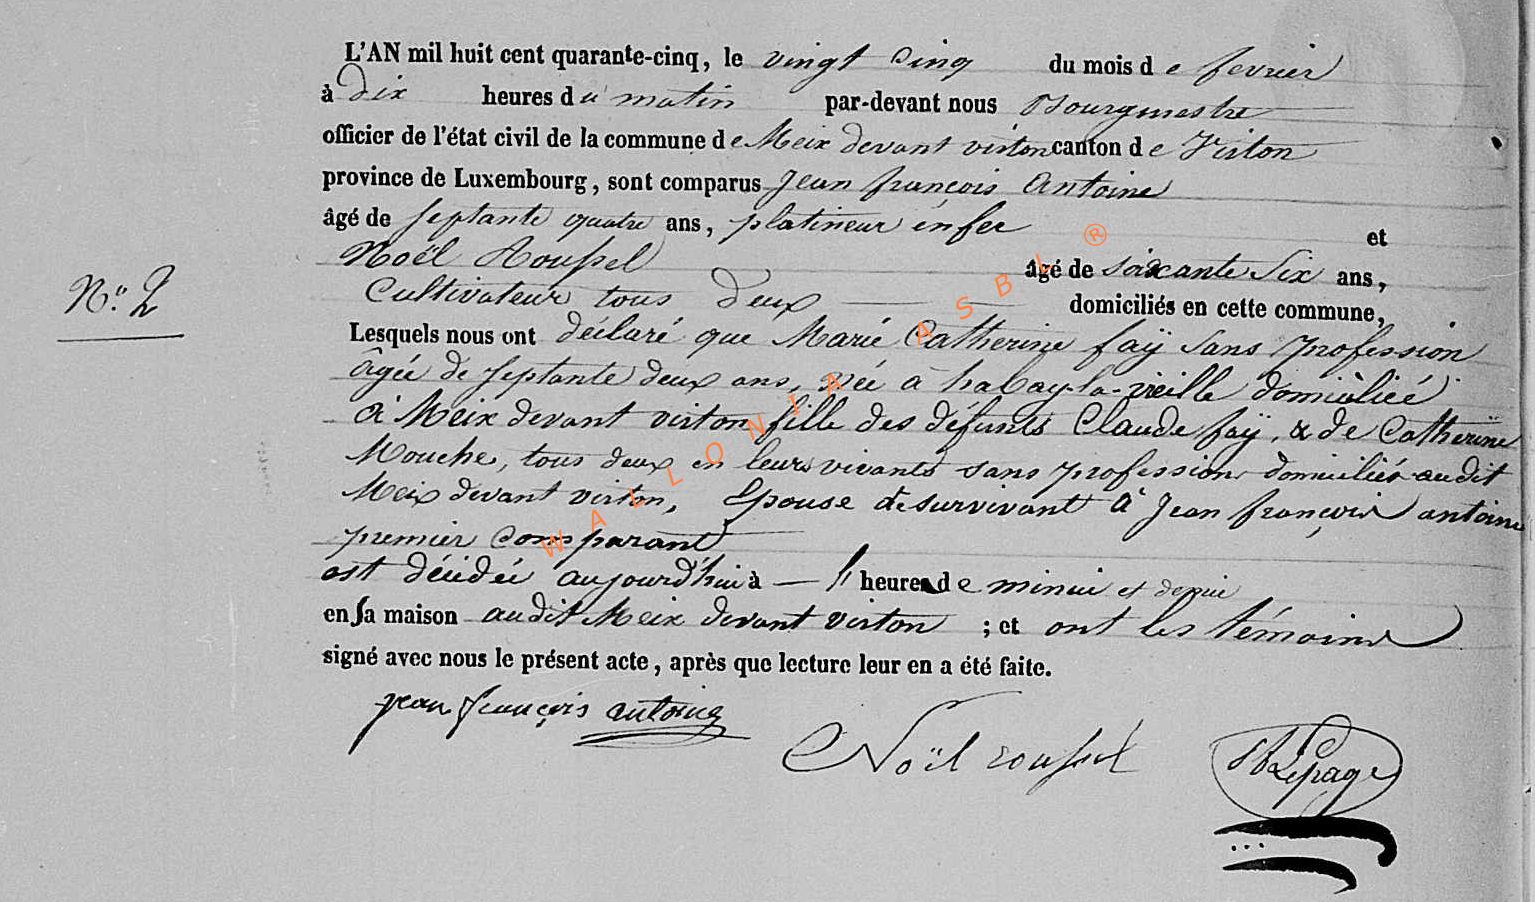 L'AN mil huit cent quarante-cinq, le vingt cinq du mois de fevrier
à dix heures du matin par-devant nous Bourgmestre
officier de l'état civil de la commune de Meix devant virton canton de Virton
province de Luxembourg, sont comparus Jean françois Antoine
âgé de septante quatre ans, platineur en fer et
Noël Roussel âgé de soixante Six ans,
Cultivateur tous deux domiciliés en cette commune,
N.º 2
Lesquels nous ont déclaré que Marie Catherine faÿ Sans profession
âgée de septante deux ans, née à habay-la-vieille domiciliée
à Meix devant virton fille des défunts Claude faÿ, & de Catherine
Mouche, tous deux en leurs vivants sans profession domiciliés audit
Meix devant virton, Epouse survivant à Jean françois antoine
premier Comparant
est décédée aujourd'hui à heures de minui et demie
en sa maison audit Meix devant virton ; et ont les témoins
signé avec nous le présent acte, après que lecture leur en a été faite.
jean françois antoine
Noël roussel
Lepage
WALLONIA ASBL ®